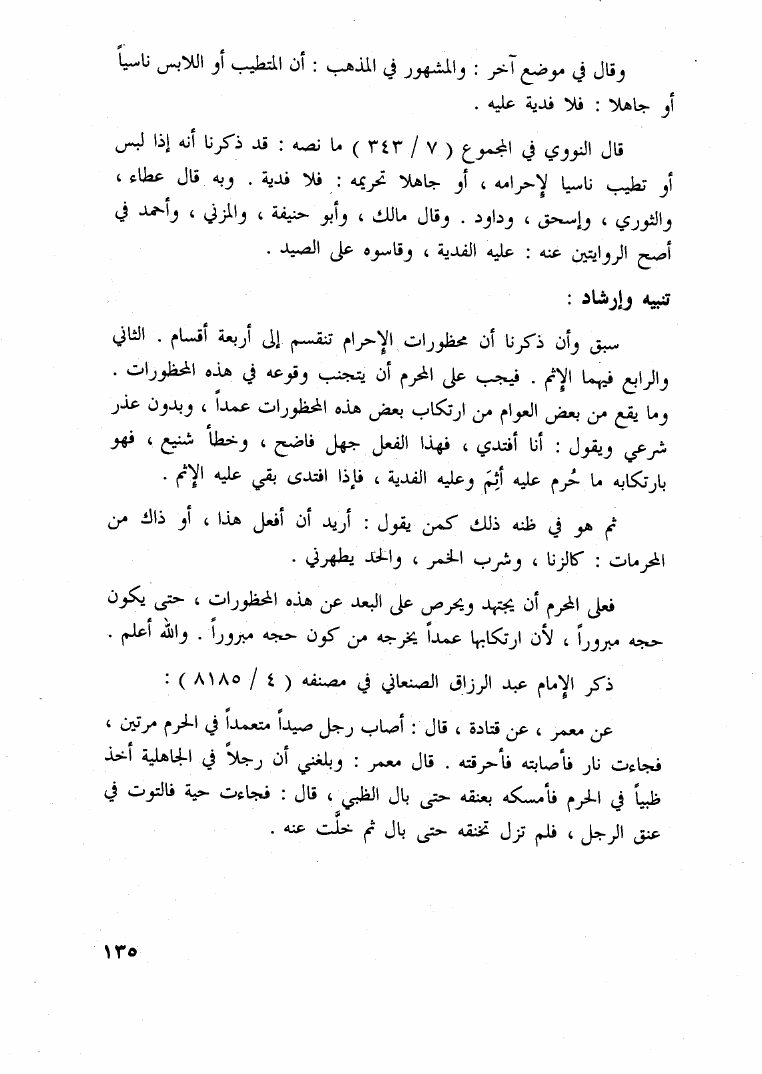 وقال في موضع آخر : والمشهور في المذهب : أن المتطيب أو اللابس ناسياً
أو جاهلا : فلا فدية عليه .
قال النووي في المجموع ( ٧ / ٣٤٣ ) ما نصه : قد ذكرنا أنه إذا لبس
أو تطيب ناسيا لإحرامه ، أو جاهلا تحريمه : فلا فدية . وبه قال عطاء ،
والثوري ، وإسحق ، وداود . وقال مالك ، وأبو حنيفة ، والمزني ، وأحمد في
أصح الروايتين عنه : عليه الفدية ، وقاسوه على الصيد .
تنبيه وإرشاد :
سبق وأن ذكرنا أن محظورات الإحرام تنقسم إلى أربعة أقسام . الثاني
والرابع فيهما الإثم . فيجب على المحرم أن يتجنب وقوعه في هذه المحظورات .
وما يقع من بعض العوام من ارتكاب بعض هذه المحظورات عمداً ، وبدون عذر
شرعي ويقول : أنا أفتدي ، فهذا الفعل جهل فاضح ، وخطأ شنيع ، فهو
بارتكابه ما حُرم عليه أثِمَ وعليه الفدية ، فإذا افتدى بقي عليه الإثم .
ثم هو في ظنه ذلك كمن يقول : أريد أن أفعل هذا ، أو ذاك من
المحرمات : كالزنا ، وشرب الخمر ، والحد يطهرني .
فعلى المحرم أن يجتهد ويحرص على البعد عن هذه المحظورات ، حتى يكون
حجه مبروراً ، لأن ارتكابها عمداً يخرجه من كون حجه مبروراً . والله أعلم .
ذكر الإمام عبد الرزاق الصنعاني في مصنفه ( ٤ / ٨١٨٥ ) :
عن معمر ، عن قتادة ، قال : أصاب رجل صيداً متعمداً في الحرم مرتين ،
فجاءت نار فأصابته فأحرقته . قال معمر : وبلغني أن رجلاً في الجاهلية أخذ
ظبياً في الحرم فأمسكه بعنقه حتى بال الظبي ، قال : فجاءت حية فالتوت في
عنق الرجل ، فلم تزل تخنقه حتى بال ثم خلَّت عنه .
١٣٥